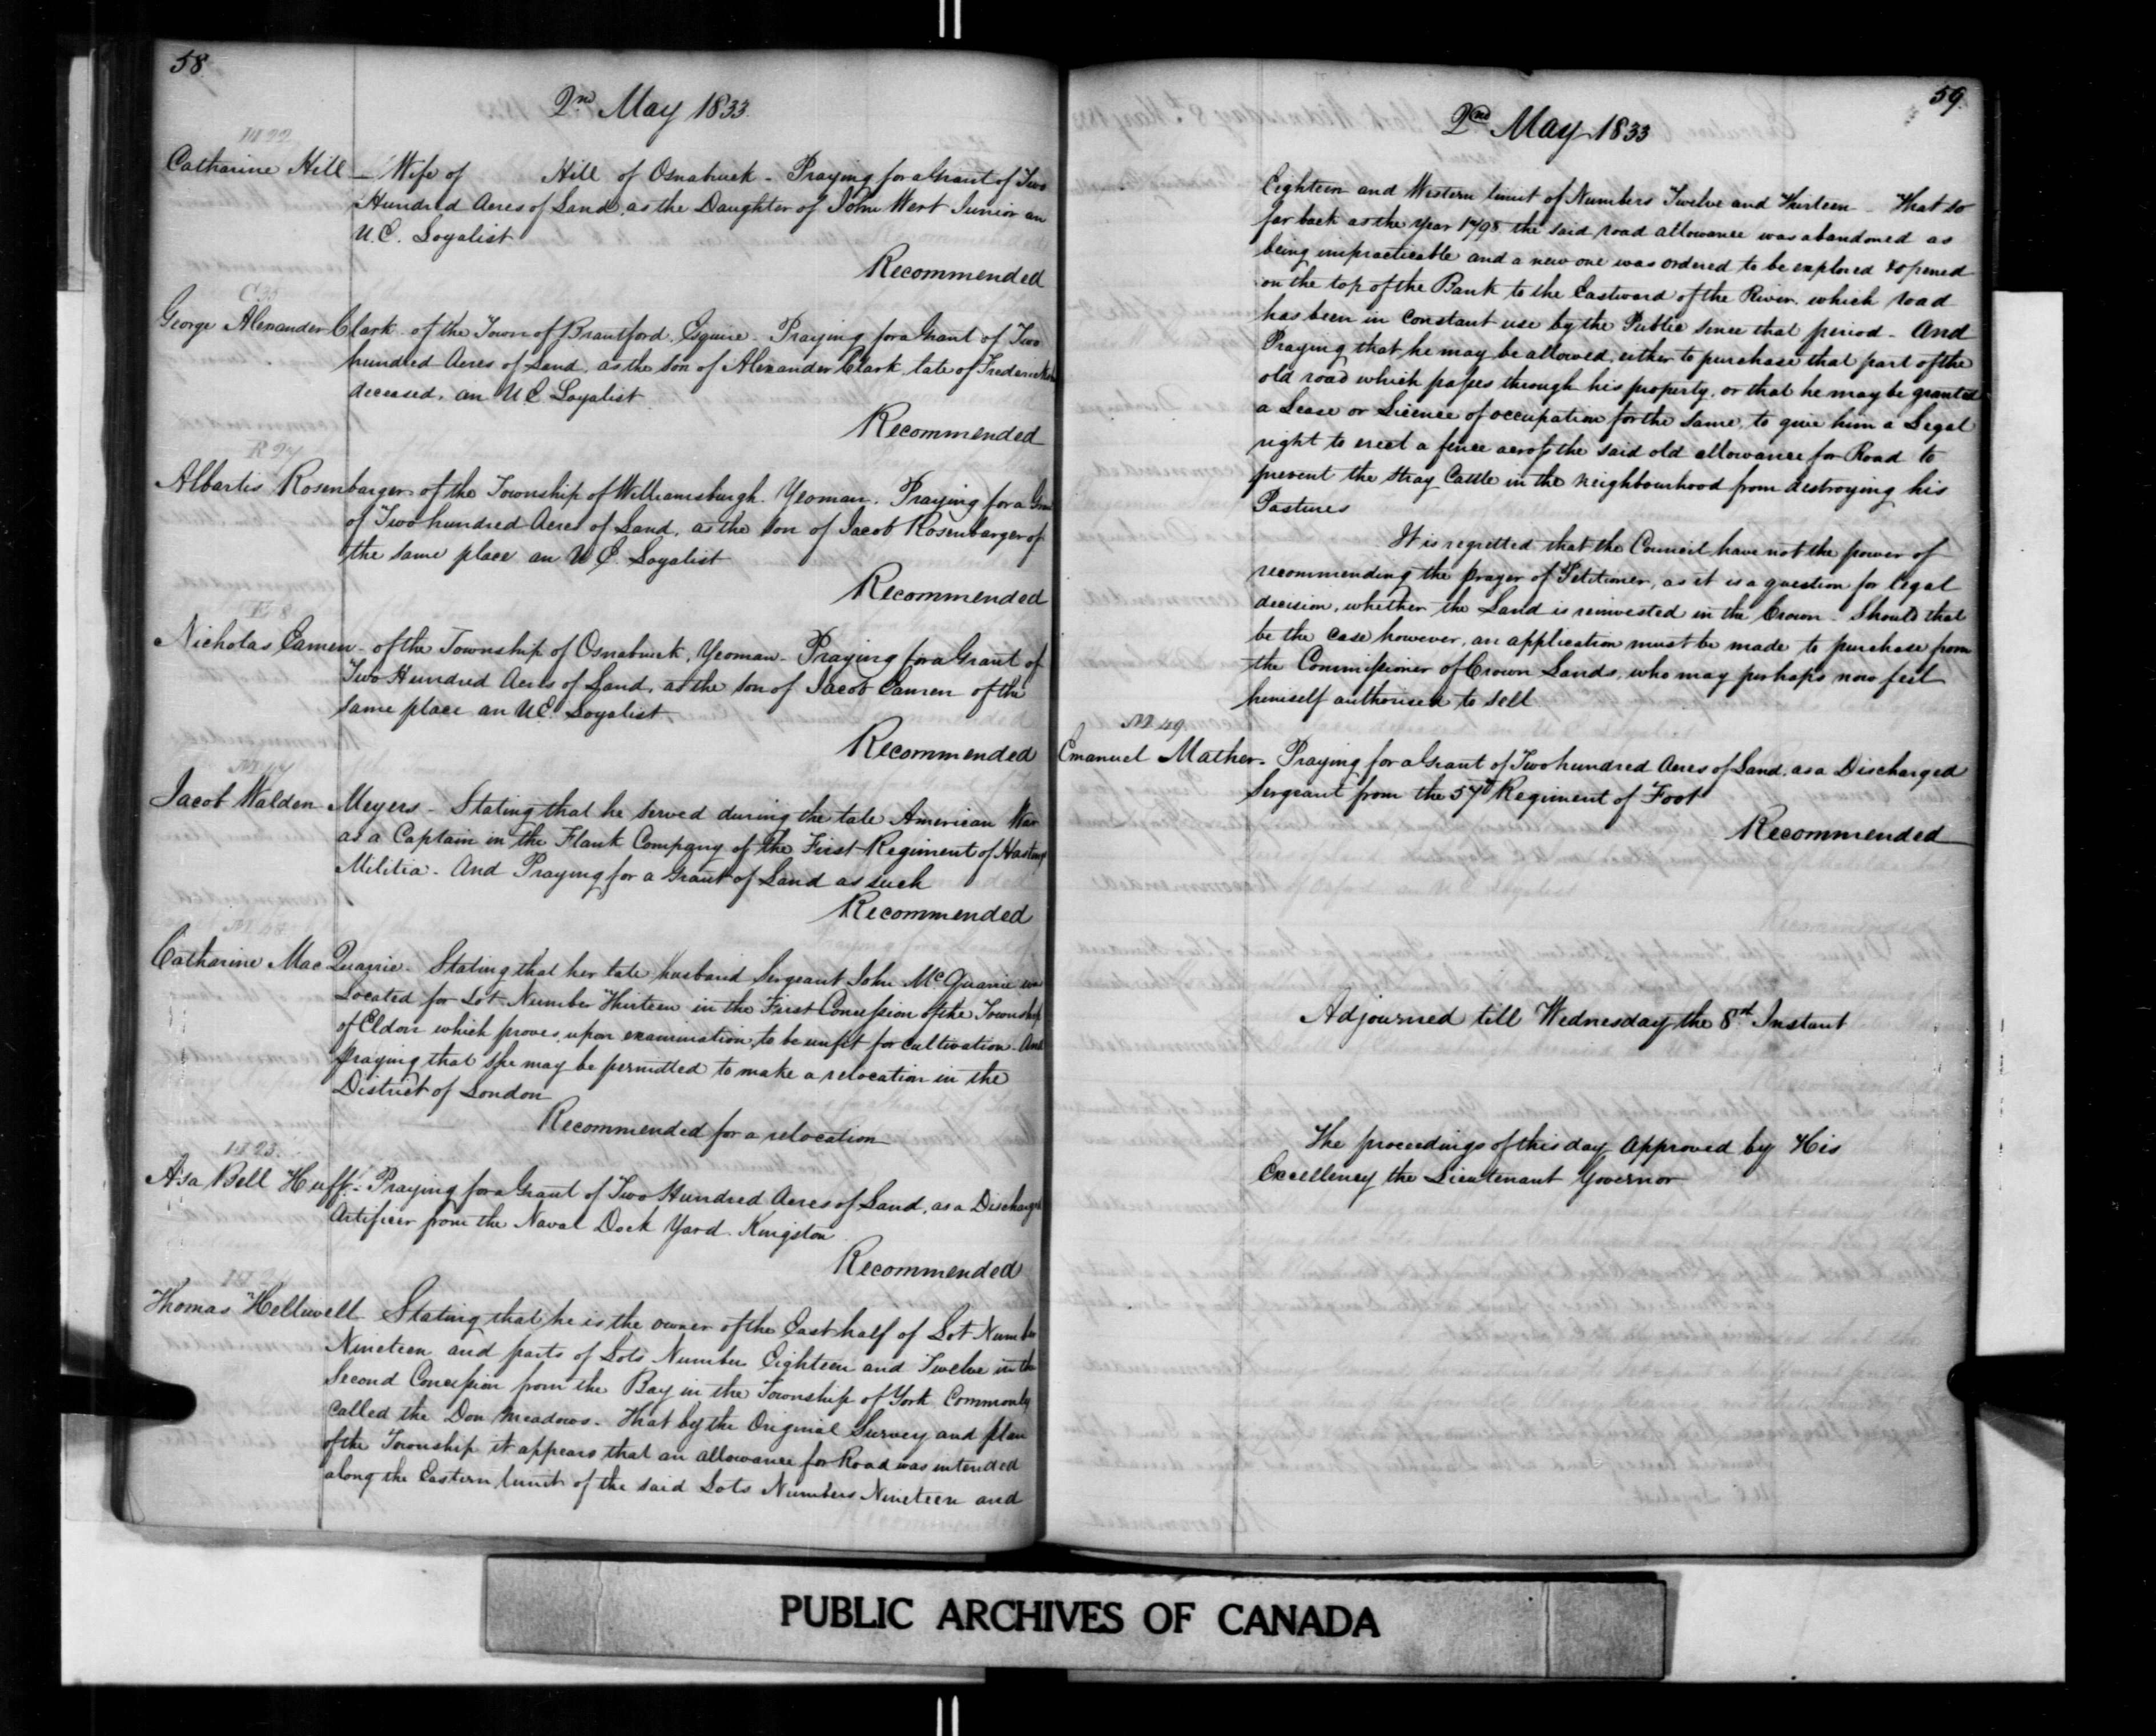 58
2nd May 1833.
H 22
Catharine Hill - Wife of Hill of Osnabruck - Praying for a Grant of Two
Hundred Acres of Land, as the Daughter of John Wert Junior an
U.E. Loyalist
Recommended
C 35
George Alexander Clark - of the Town of Brantford, Esquire - Praying for a Grant of Two
hundred Acres of Land, as the son of Alexander Clark, late of
deceased, an U.E. Loyalist
Recommended
R 27
Albartis Rosenbarger of the Township of Williamsburgh. Yeoman. Praying for a
of Two hundred Acres of Land, as the Son of Jacob Rosenbarger of
the same place an U E. Loyalist
Recommended
E 8
Nicholas Eamen - of the Township of Osnabruck, Yeoman - Praying for a Grant of
Two Hundred Acres of Land, as the Son of Jacob Eamen of the
same place an U.E. Loyalist
Recommended
Jacob Walden Meyers - Stating that he served during the late American War
as a Captain in the Flank Company of the First Regiment of Hastings
Militia - And Praying for a Grant of Land as such
Recommended
M 48
Catharine Mac Quarrie - Stating that her late husband Sergeant John McQuarrie was
Located for Lot Number Thirteen in the First Concession of the Township
of Eldon which proves, upon examination, to be unfit for cultivation - And
praying that she may be permitted to make a relocation in the
District of London
Recommended for a relocation
H 23.
Asa Bell Huff - Praying for a Grant of Two Hundred Acres of Land, as a Discharged
Artificer from the Naval Dock Yard. Kingston
Recommended
Thomas Helliwell Stating that he is the owner of the East half of Lot Number
Nineteen and parts of Lots Number Eighteen and Twelve in the
Second Concession from the Bay in the Township of York Commonly
Called the Don Meadows - That by the Original Survey and plan
of the Township it appears that an allowance for Road was intended
along the Eastern limit of the said Lots Numbers Nineteen and
59.
2nd May 1833
Eighteen and Western limit of Numbers Twelve and Thirteen - That so
far back as the Year 1798 the said road allowance was abandoned as
being impracticable and a new one was ordered to be explored & opened
on the top of the Bank to the Eastward of the River, which road
has been in constant use by the Public since that period - And
Praying that he may be allowed, either to purchase that part of the
old road which passes through his property, or that he may be granted
a Lease or Licence of occupation for the same, to give him a Legal
right to erect a fence across the said old allowance for Road to
prevent the stray Cattle in the neighbourhood from destroying his
Pastures
It is regretted that the Council have not the power of
recommending the prayer of Petitioner, as it is a question for legal
decision, whether the Land is reinvested in the Crown - Should that
be the case however, an application must be made to purchase from
the Commissioner of Crown Lands, who may perhaps now feel
himself authorised to sell
M 49
Emanuel Mather - Praying for a Grant of Two hundred Acres of Land, as a Discharged
Sergeant from the 57th Regiment of Foot
Recommended
Adjourned till Wednesday the 8th Instant
The proceedings of this day Approved by His
Excellency the Lieutenant Governor
PUBLIC ARCHIVES OF CANADA